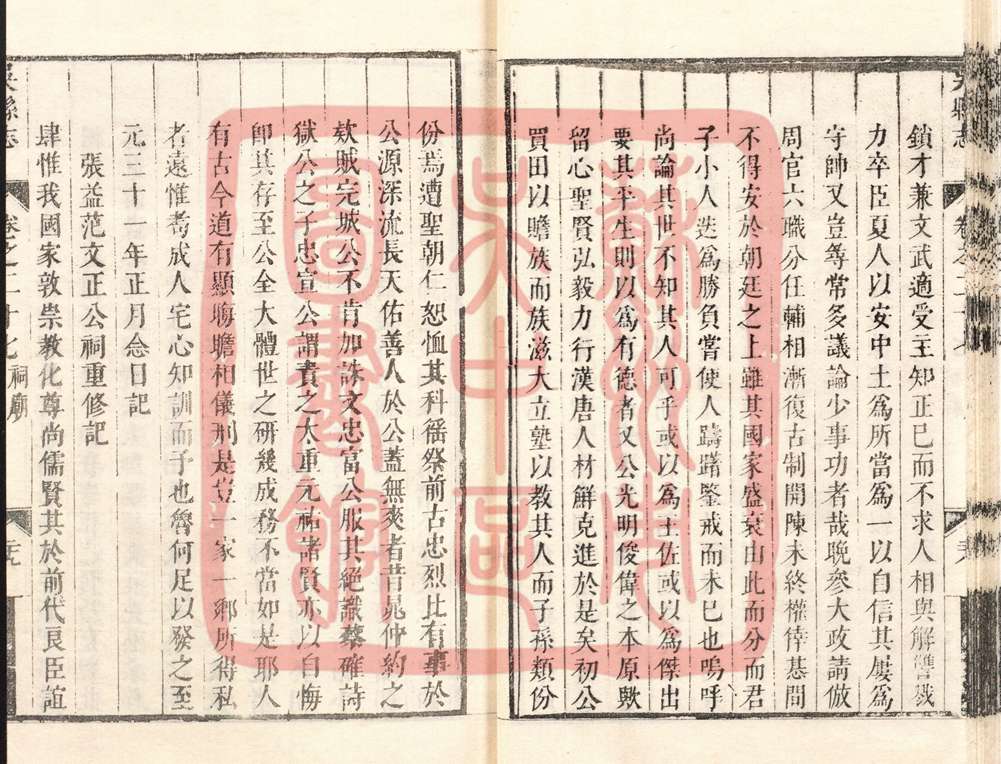 吳縣志
卷之二十七
鎖才兼文武適受主知正已而不求人相與解讐戮
力卒臣夏人以安中土爲所當爲一以自信其屢爲
守帥又豈等常多議論少事功者哉晚參大政請倣
周官六職分任輔相漸復古制開陳未終權倖惎間
不得安於朝廷之上雖其國家盛衰由此而分而君
子小人迭爲勝負嘗使人躊躇鑒戒而未已也嗚呼
尚論其世不知其人可乎或以爲王佐或以爲傑出
要其平生則以爲有德者又公光明俊偉之本原歟
留心聖賢弘毅力行漢唐人材鮮克進於是矣初公
買田以贍族而族滋大立塾以教其人而子孫類份
份焉遭聖朝仁恕恤其科徭祭前古忠烈比有事於
公源深流長天佑善人於公蓋無爽者昔晁仲約之
欵賊完城公不肯加誅文忠富公服其絕識蔡確詩
獄公之子忠宣公謂責之太重元祐諸賢亦以自悔
卽其存至公全大體世之研幾成務不當如是耶人
有古今道有顯晦瞻相儀刑是豈一家一鄉所得私
者遠惟耇成人宅心知訓而予也魯何足以發之至
元三十一年正月念日記
張益范文正公祠重修記
肆惟我國家敦崇教化尊尚儒賢其於前代良臣誼
吳縣志
卷之二十七
祠廟
蘇州市
吳中區
圖書館